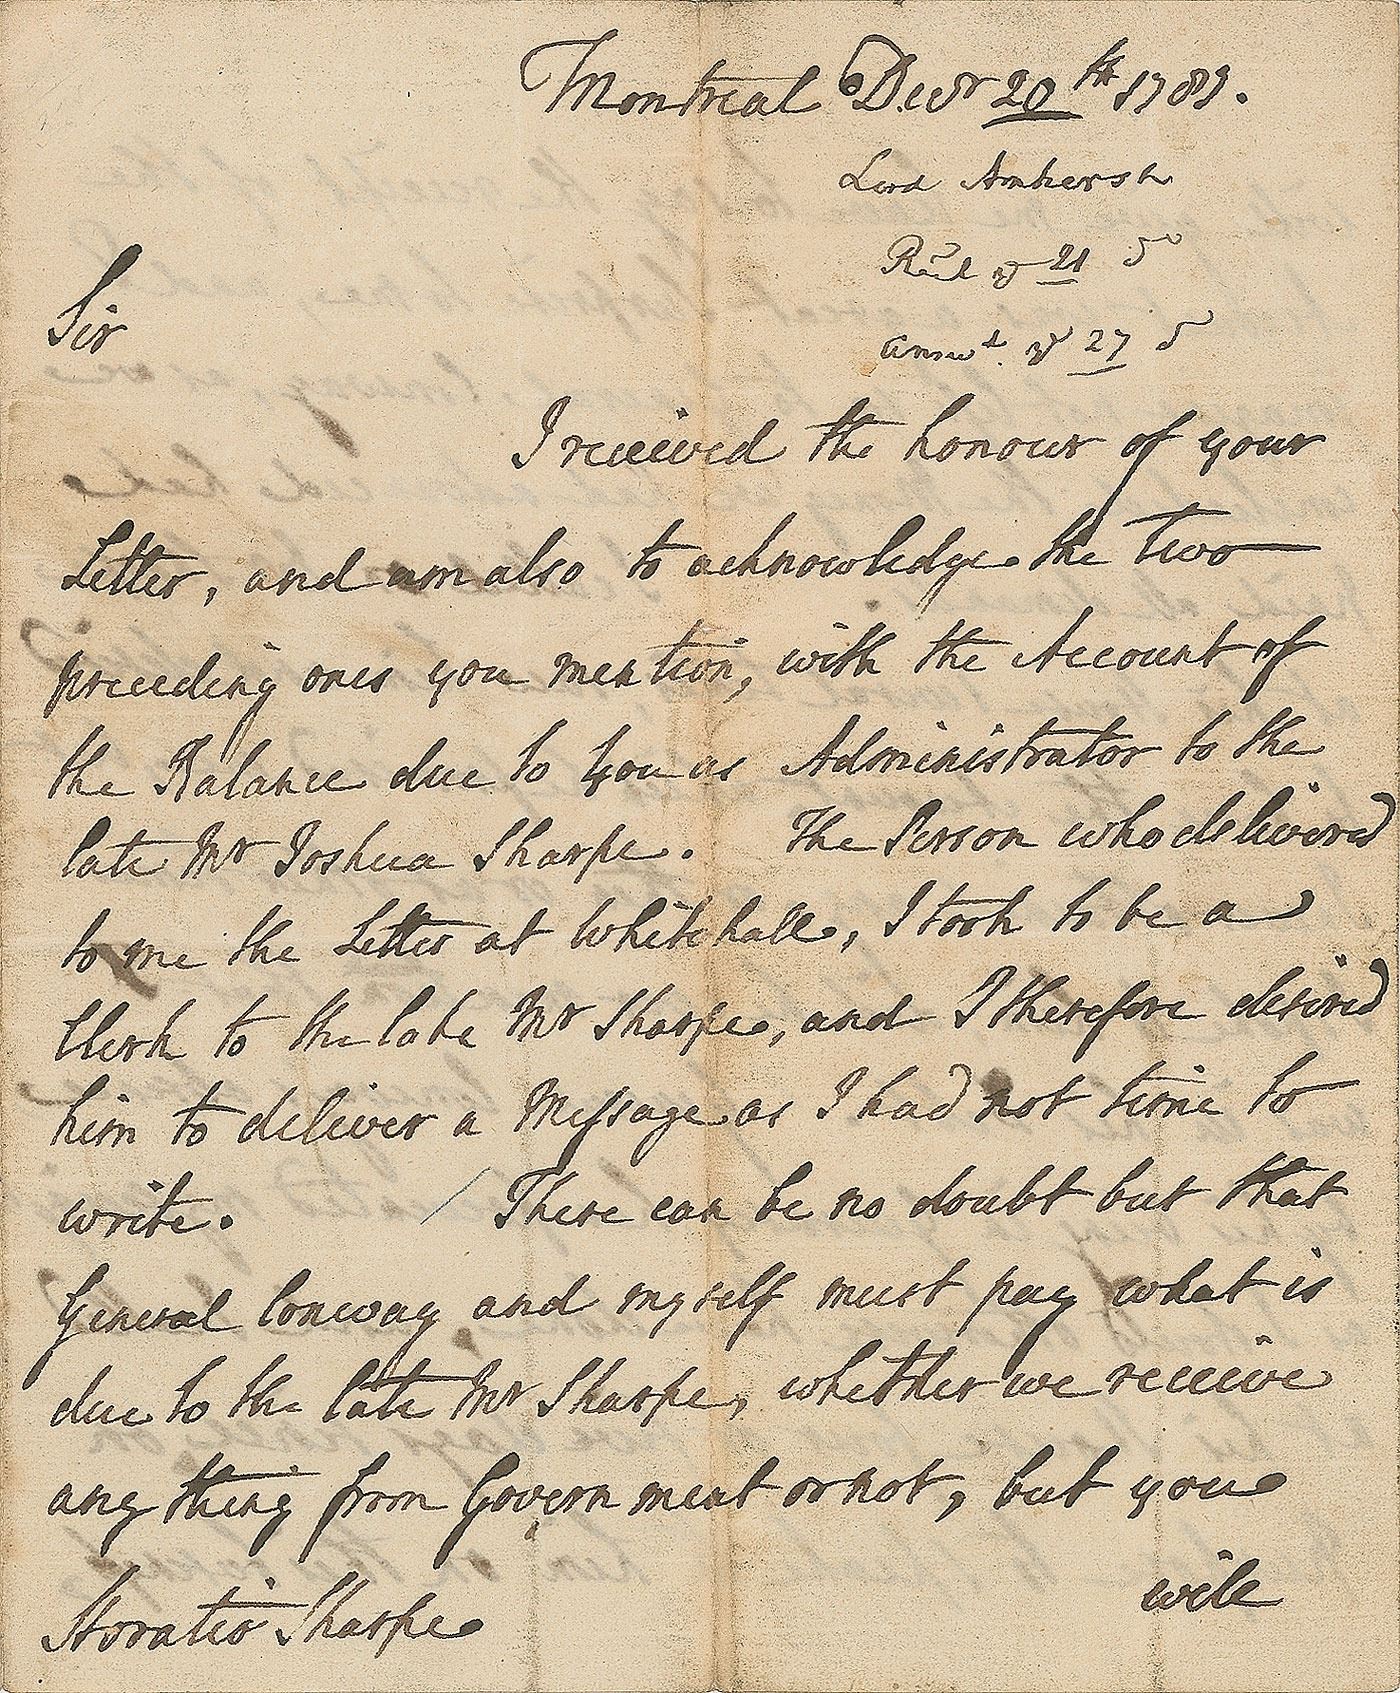 Montreal Decr 20th 1789.
Lord Amherst
Recd ye 21 Do
Answd. ye 27 Do
Sir
I received the honour of your
Letter, and am also to acknowledge the two
preceeding ones you mention, with the Account of
the Balance due to You as Administrator to the
late Mr Joshua Sharpe. The Person who delivered
to me the Letter at Whitehall, I took to be a
Clerk to the late Mr Sharpe, and I therefore desired
him to deliver a Message as I had not time to
write. / There can be no doubt but that
General Conway and myself must pay what is
due to the late Mr Sharpe, whether we receive
any thing from Government or not, but you
will
Horatio Sharpe